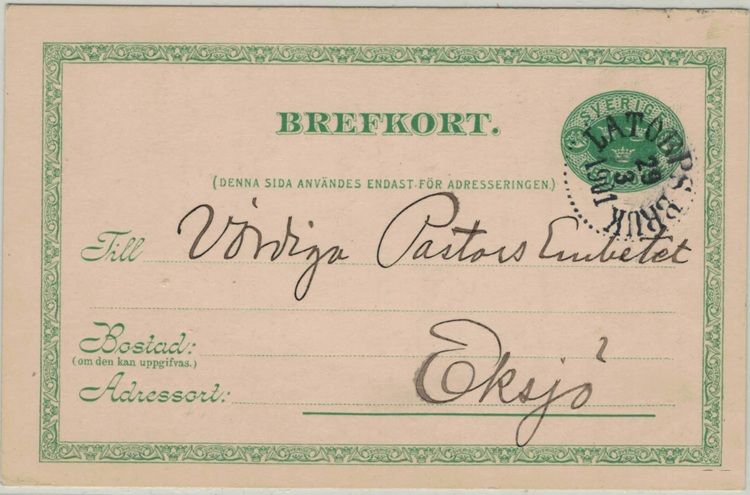 SVERIGE
BREFKORT.
LATORPSBRUK
29
3
1901
(DENNA SIDA ANVÄNDES ENDAST FÖR ADRESSERINGEN.)
Till Vördiga Pastors Embetet
Bostad:
(om den kan uppgifvas.)
Adressort: Eksjö